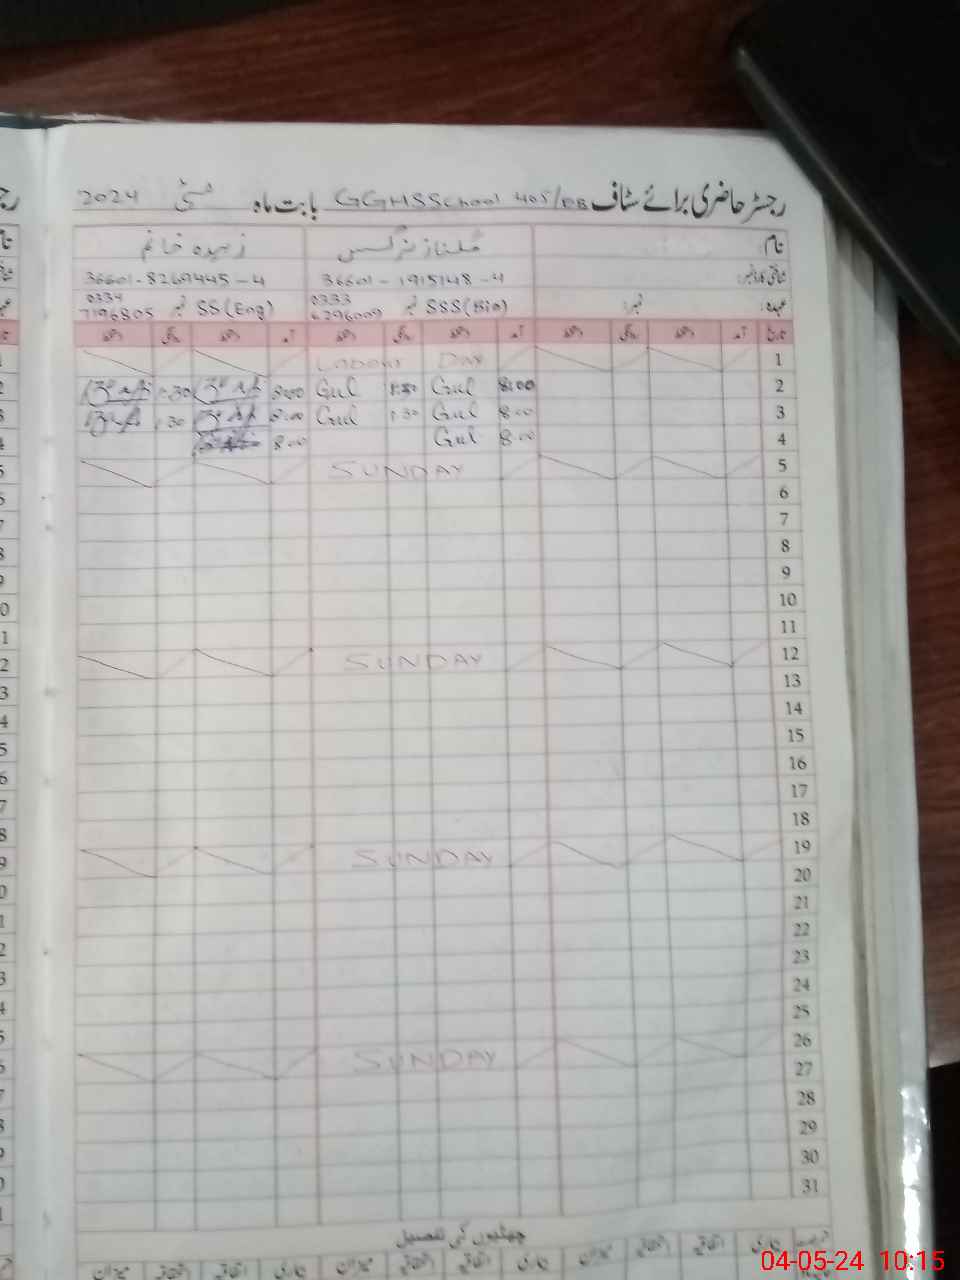 رجسٹر حاضری برائے سٹاف GGHSSchool 405/EB بابت ماہ مئی 2024
نام: گلناز نرگس زبیدہ خانم
شناختی کارڈ نمبر: 36601-1915148-4 36601-8269445-4
عہدہ: نمبر: SSS(Bio) نمبر 0333 SS(Eng) نمبر 0334
6296009 7196805
تاریخ آمد دستخط روانگی دستخط آمد دستخط روانگی دستخط آمد دستخط روانگی دستخط
1 Labour DAY
2 8:00 Gul 1:30 Gul 8:00 1:30
3 8:00 Gul 1:30 Gul 8:00 1:30
4 8:00 Gul 8:00
5 SUNDAY
6
7
8
9
10
11
12 SUNDAY
13
14
15
16
17
18
19 SUNDAY
20
21
22
23
24
25
26 SUNDAY
27
28
29
30
31
چھٹیوں کی تفصیل
جاری اتفاقیہ اتفاقیہ میزان جاری اتفاقیہ میزان جاری اتفاقیہ میزان
04-05-24 10:15